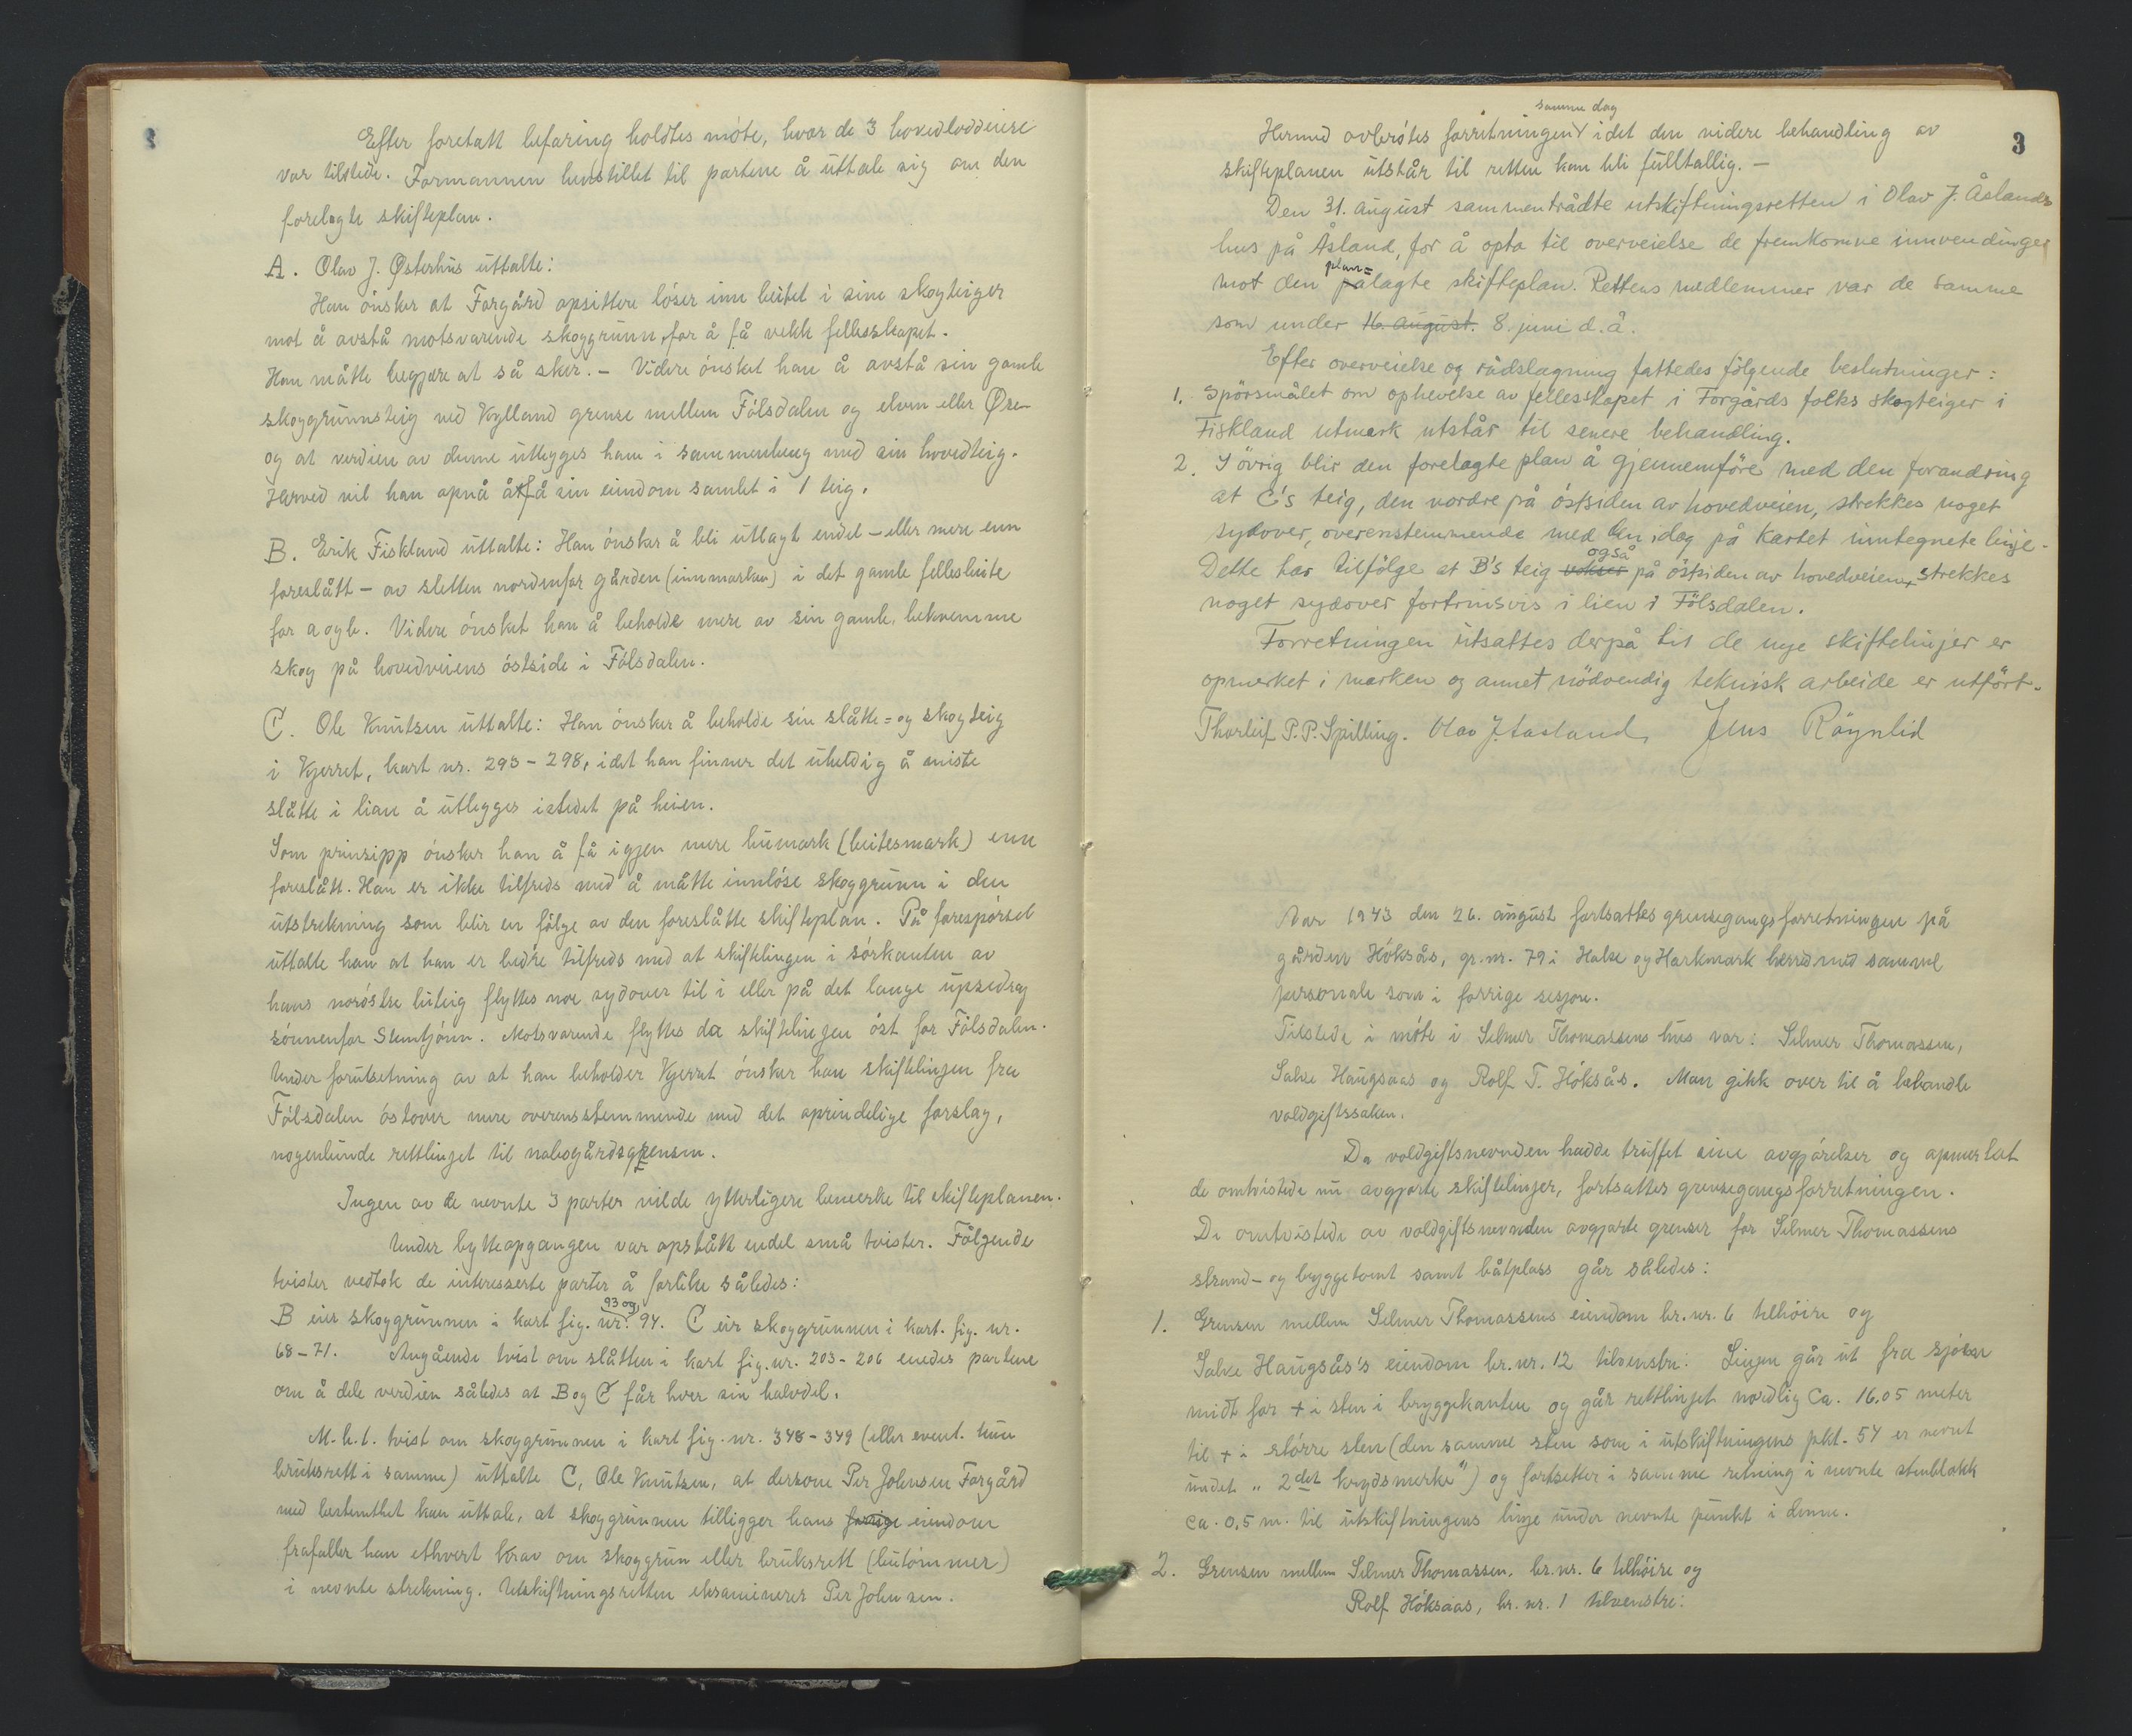 Efter foretatt befaring holdtes möte, hvor de 3 hovedloddeiere
var tilstede. Formannen henstillet til partene å uttale sig om den
forelagte skifteplan.
A. Olav J. Østerhus uttalte:
Han önsker at Forgård opsittere löser inn beitet i sine skogteiger
mot å avstå motsvarende skoggrunn, for å få vekk fellesskapet.
Han måtte begjære at så sker. – Videre önsket han å avstå sin gamle
skoggrunnsteig ved Kylland grense mellem Fölsdalen og elven eller Øre-
og at verdien av denne utlegges ham i sammenheng med sin hovedteig.
Herved vil han opnå å få sin eiendom samlet i 1 teig.
B. Erik Fiskland uttalte: Han önsker å bli utlagt endel – eller mere enn
foreslått – av sletten nordenfor gården (innmarken) i det gamle fellesbeite
for a og b. Videre önsket han å beholde mere av sin gamle, bekvemme
skog på hovedveiens östside i Fölsdalen.
C. Ole Knutsen uttalte: Han önsker å beholde sin slåtte= og skogteig
i Kjerret, kart nr. 293 – 298, idet han finner det uheldig å miste
slåtte i lian å utlegges istedet på heien.
Som prinsipp önsker han å få igjen mere heimark (beitesmark) enn
foreslått. Han er ikke tilfreds med å måtte innlöse skoggrunn i den
utstrekning som blir en fölge av den foreslåtte skifteplan. På forespörsel
uttalte han at han er bedre tilfreds med at skiftelingen i sörkanten av
hans noröstre heiteig flyttes noe sydover til i eller på det lange upsedrag
sönnenfor Stemtjönn. Motsvarende flyttes da skiftelinjen öst for Fölsdalen.
Under forutsetning av at han beholder Kjerret önsker han skiftelinjen fra
Fölsdalen östover mere overensstemmende med det oprindelige forslag,
nogenlunde rettlinjet til nabogårdsgrensen.
Ingen av de nevnte 3 parter vilde ytterligere bemerke til skifteplanen.
Under bytteopgangen var opstått endel små tvister. Fölgende
tvister vedtok de interesserte parter å forlike således:
93 og
B eier skoggrunnen i kart fig. nr. 94. C eir skoggrunnen i kart. fig. nr.
68 – 71. Angående tvist om slåtten i kart fig. nr. 203 – 206 enedes partene
om å dele verdien således at B og C får hver sin halvdel.
M.h.t. tvist om skoggrunnen i kart fig. nr. 348 – 349 (eller event. kun
bruksrett i samme) uttalte C, Ole Knutsen, at dersom Per Johnsen Forgård
med bestemthet kan uttale, at skoggrunnen tilligger hans forrige eiendom
frafaller han ethvert krav om skoggrun eller bruksrett (beitömmer)
i nevnte strekning. Utskiftningsretten eksaminerer Per Johnsen.
3
samme dag
Hermed avbrötes forretningen idet den videre behandling av
skifteplanen utstår til retten kan bli fulltallig. –
Den 31. august sammentrådte utskiftningsretten i Olav J. Åslands
hus på Åsland, for å opta til overveielse de fremkomne innvendinger
plan=
mot den pålagte skifteplan. Rettens medlemmer var de samme
som under 16. august. 8. juni d.å.
Efter overveielse og rådslagning fattedes fölgende beslutninger:
1. Spörsmålet om ophevelse av fellesskapet i Forgårds folks skogteiger i
Fiskland utmark utstår til senere behandling.
2. I övrig blir den forelagte plan å gjennemföre med den forandring
at C's teig, den nordre på östsiden av hovedveien, strekkes noget
sydover, overenstemmende med den idag på kartet inntegnete linje.
også
Dette har tilfölge at B's teig vokser på östsiden av hovedveien, strekkes
noget sydover fortrinsvis i lien i Fölsdalen.
Forretningen utsattes derpå til de nye skiftelinjer er
opmerket i marken og annet nödvendig teknisk arbeide er utfört.
Thorleif P.P. Spilling. Olav J. Aasland, Jens Röynlid
Aar 1943 den 26. august fortsattes grensegangsforretningen på
gården Höksås, gr.nr. 79 i Halse og Harkmark herred med samme
personale som i forrige sesjon.
Tilstede i möte i Selmer Thomassens hus var: Selmer Thomassen,
Salve Haugsaas og Rolf T. Höksås. Man gikk over til å behandle
voldgiftssaken.
Da voldgiftsnevnden hadde truffet sine avgjörelser og opmerket
de omtvistede nu avgjorte skiftelinjer, fortsattes grensegangsforretningen.
De omtvistede av voldgiftsnevnden avgjorte grenser for Selmer Thomassens
strand- og byggetomt samt båtplass går således:
1. Grensen mellem Selmer Thomassens eiendom br.nr. 6 tilhöire og
Salve Haugsås's eiendom br.nr. 12 tilvenstre: Linjen går ut fra sjöen
midt for + i sten i bryggekanten og går rettlinjet nordlig ca. 16,05 meter
til + i större sten (den samme sten som i utskiftningens pkt. 54 er nevnt
under „2det krydsmerke") og fortsetter i samme retning i nevnte stenblokk
ca. 0,5 m. til utskiftningens linje under nevnte punkt i denne.
2. Grensen mellem Selmer Thomassen, br.nr. 6 tilhöire og
Rolf Höksaas, br.nr. 1 tilvenstre: